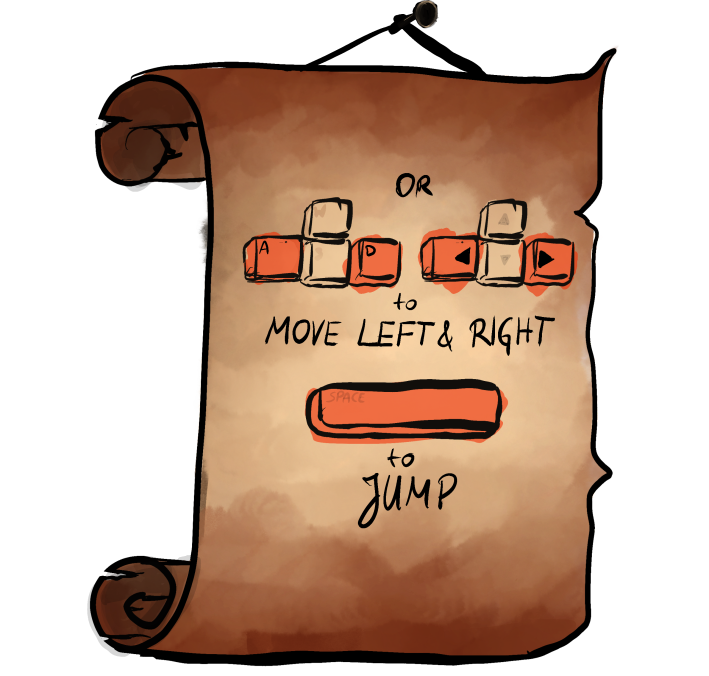 OR
A D
to
MOVE LEFT & RIGHT
SPACE
to
JUMP